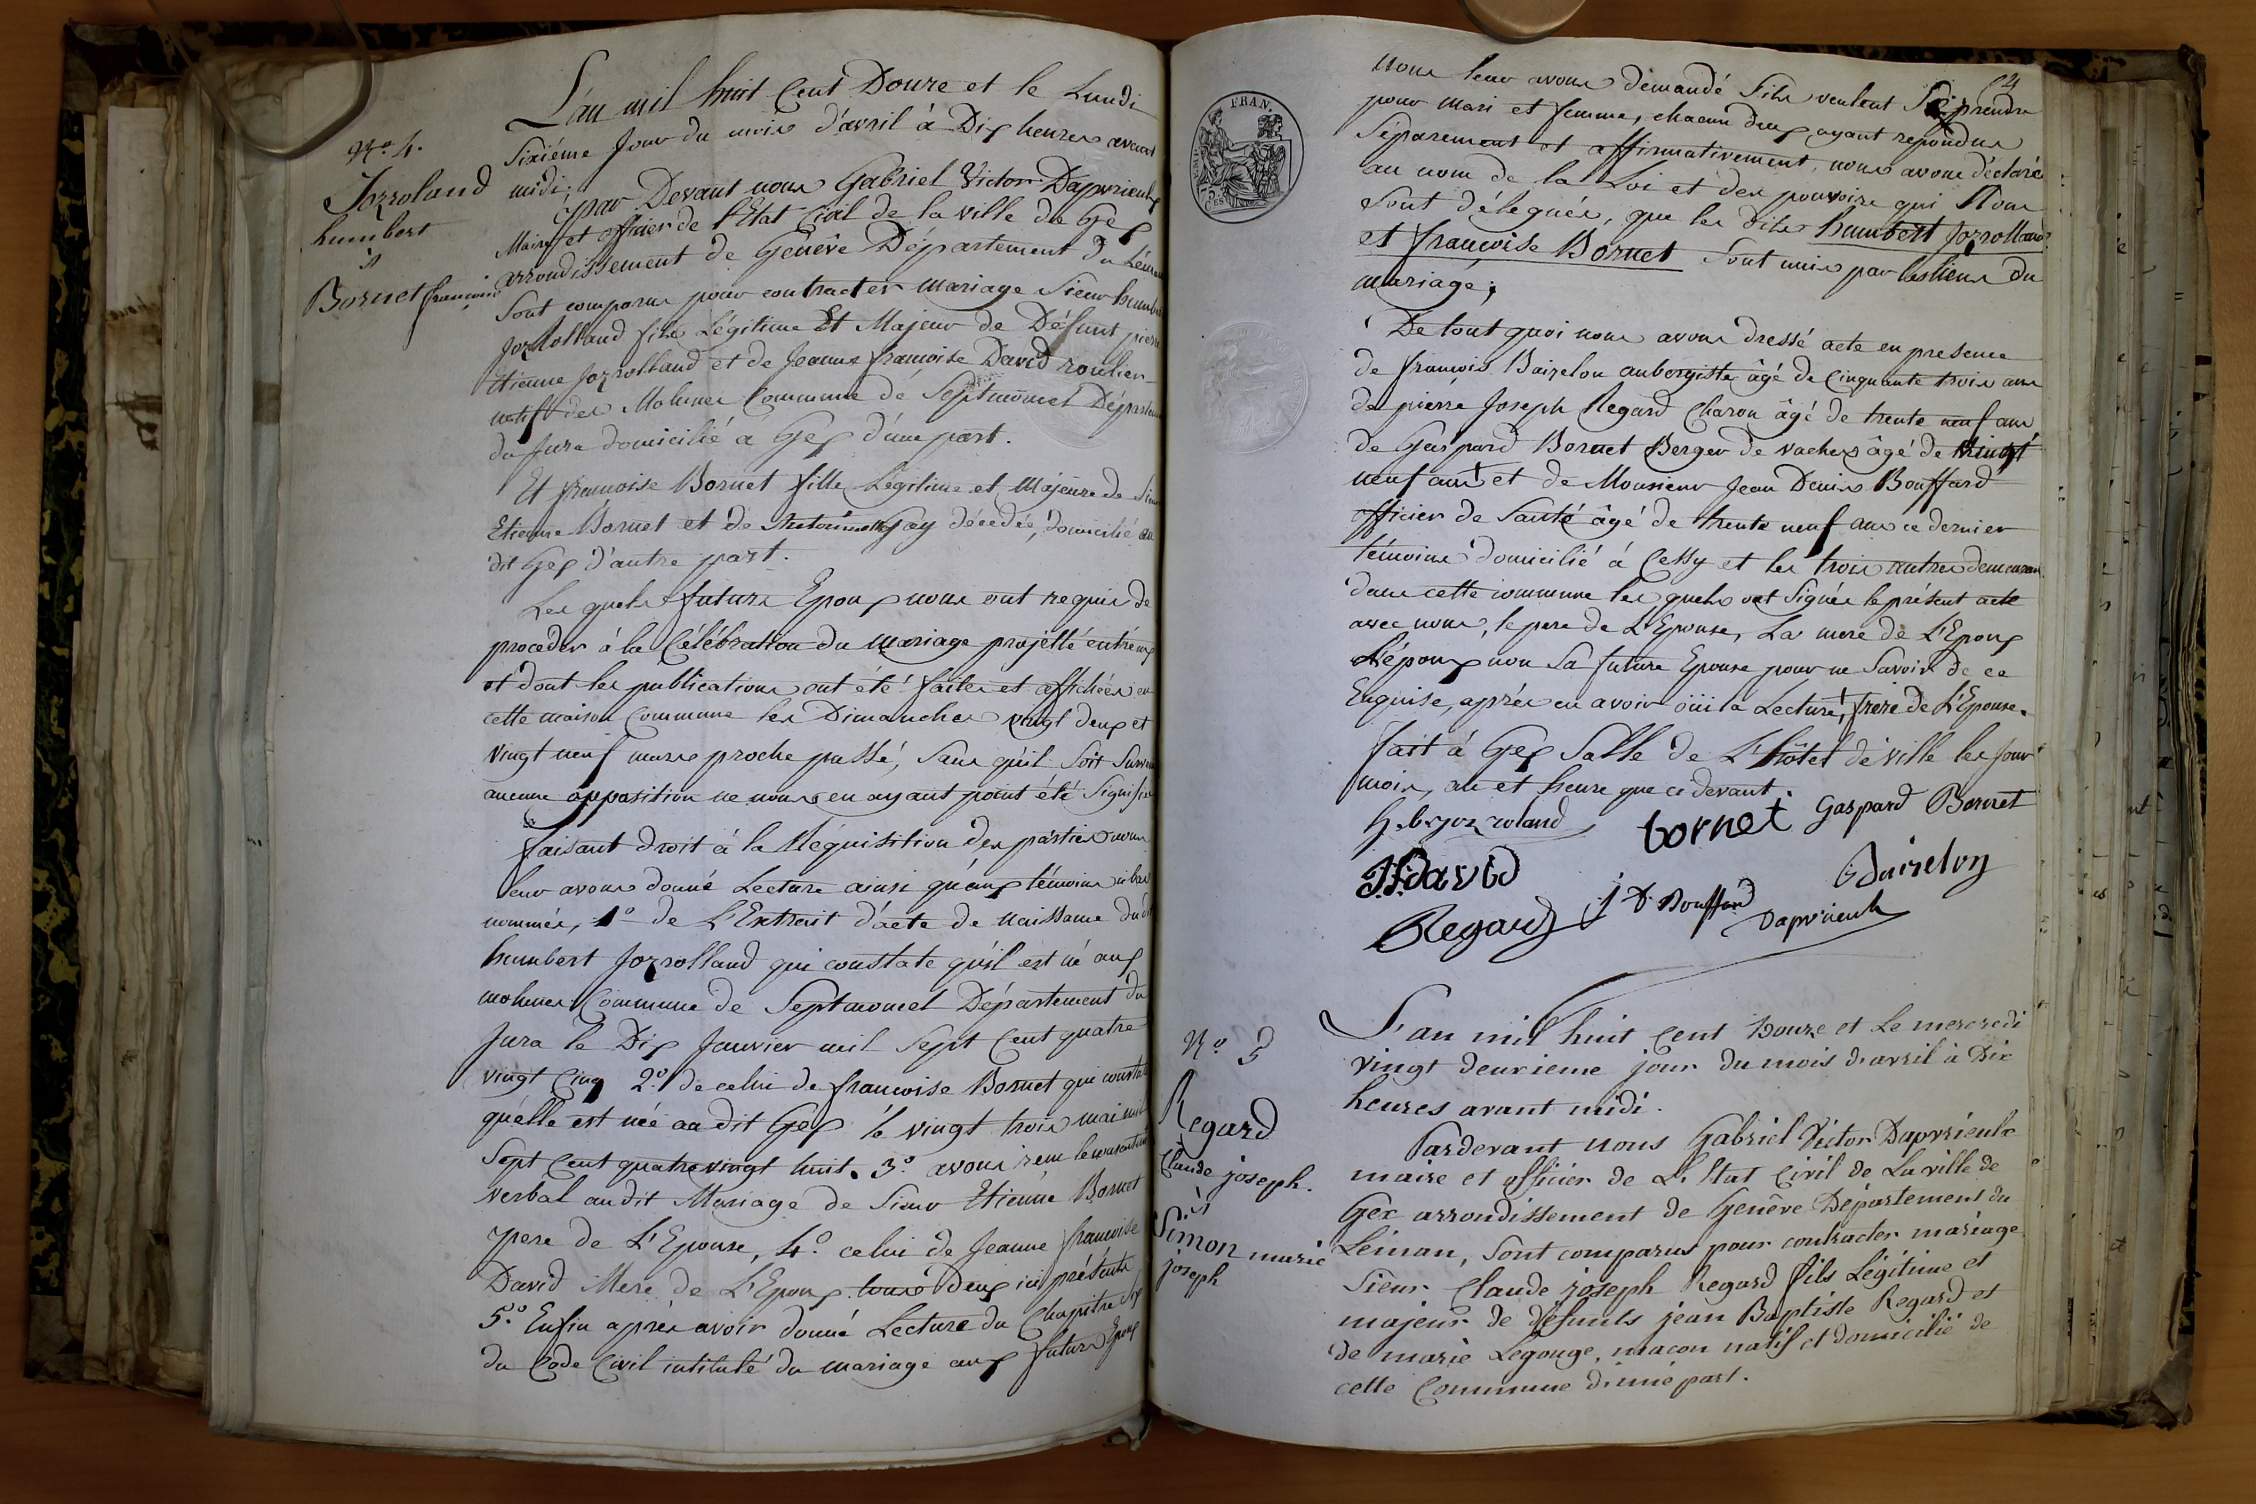 N.o 4.
Jozroland
humbert
à
Bornet françoise
L'an mil huit Cent Douze et le Lundi
Sixiéme Jour du mois d'avril à Dix heures avant
midi;
par Devant nous Gabriel Victor Dapvrieulx
Maire et officier de l'Etat Civil de la ville de Gex
arrondissement de Genêve Département du Léman
Sont comparus pour contracter mariage Sieur humbert
Jozrolland fils Légitime Et Majeur de Défunt pierre
Etienne Jozrolland et de Jeanne françoise David roulier
natif des Molunes Commune de Septmoncel Départem
du Jura domicilié à Gex d'une part.
Et françoise Bornet fille Légitime et Majeure de Sieur
Etienne Bornet et de Antoinette Gay décedée, domicilié au
dit Gex d'autre part.
Les quels futurs Epoux nous ont requis de
proceder à la Célébration du Mariage projetté entr'eux
et dont les publications ont été faites et affichées en
cette maison Commune les Dimanches vingt deux et
vingt neuf mars proche passé, Sans qu'il Soit Survenu
aucune opposition ne nous en ayant point été Signifiée
faisant droit à la Réquisition des parties nous
leur avons donné Lecture ainsi qu'aux témoins ci bas
nommés, 1.o de L'Extrait d'acte de naissance du dit
humbert Jozrolland qui constate qu'il est né aux
molunes Commune de Septmoncel Département du
Jura le Dix Janvier mil Sept Cent quatre
vingt Cinq 2.o de celui de françoise Bornet qui constate
qu'elle est née au dit Gex le vingt trois mai mil
Sept Cent quatre vingt huit. 3.o avons reçu le consentement
verbal au dit Mariage de Sieur Etienne Bornet
pere de L'Epouse, 4.o celui de Jeanne françoise
David Mere de L'Epoux tous deux ici présents
5.o Enfin après avoir donné Lecture du Chapitre Six
du Code Civil intitulé du mariage aux futurs Epoux
24
nous leur avons demandé S'ils veulent Se prendre
pour mari et femme, chacun d'eux ayant repondus
Séparement et affirmativement, nous avons déclaré
au nom de la Loi et des pouvoirs qui Nous
Sont délegués, que les dits humbert Jozrolland
et françoise Bornet Sont unis par les liens du
mariage;
De tout quoi nous avons dressé acte en presence
de françois Baizelon aubergiste âgé de Cinquante trois ans
de pierre Joseph Regard Charon âgé de trente neuf ans
de Gaspard Bornet Berger de vaches âgé de vingt
neuf ans et de Monsieur Jean Denis Bouffard
officier de Santé âgé de trente neuf ans ce dernier
témoins domicilié à Cessy et les trois autres demeurans
dans cette commune les quels ont Signés le présent acte
avec nous, le pere de L'Epouse, La mere de L'Epoux
L'époux non Sa future Epouse pour ne Savoir de ce
Enquise, après en avoir ouï la Lecture, frere de L'Epouse.
fait à Gex Salle de L'hôtel de ville les Jour
mois, an et heure que ci devant.
hbrjozroland
bornet
Gaspard Bornet
JFdavid
Baizelon
Regard
J D Bouffard
Dapvrieulx
N.o 5
Regard
Claude joseph.
à
Simon marie
joseph
L'an mil huit cent Douze et le mercredi
vingt deuxieme jour du mois d'avril à Dix
heures avant midi.
Pardevant nous Gabriel Victor Dapvrieulx
maire et officier de L'Etat Civil de La ville de
Gex arrondissement de Genêve Département du
Léman, Sont comparus pour contracter mariage
Sieur Claude joseph Regard fils Légitime et
majeur de défunts jean Baptiste Regard et
de marie Legouge, maçon natif et domicilié de
cette Commune d'une part.